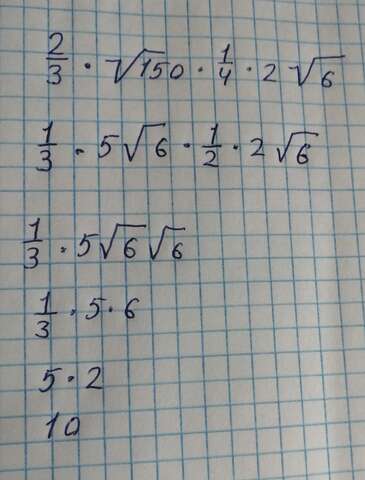 2/3 · √150 · 1/4 · 2 √6
1/3 · 5√6 · 1/2 · 2√6
1/3 · 5√6 √6
1/3 · 5 · 6
5 · 2
10